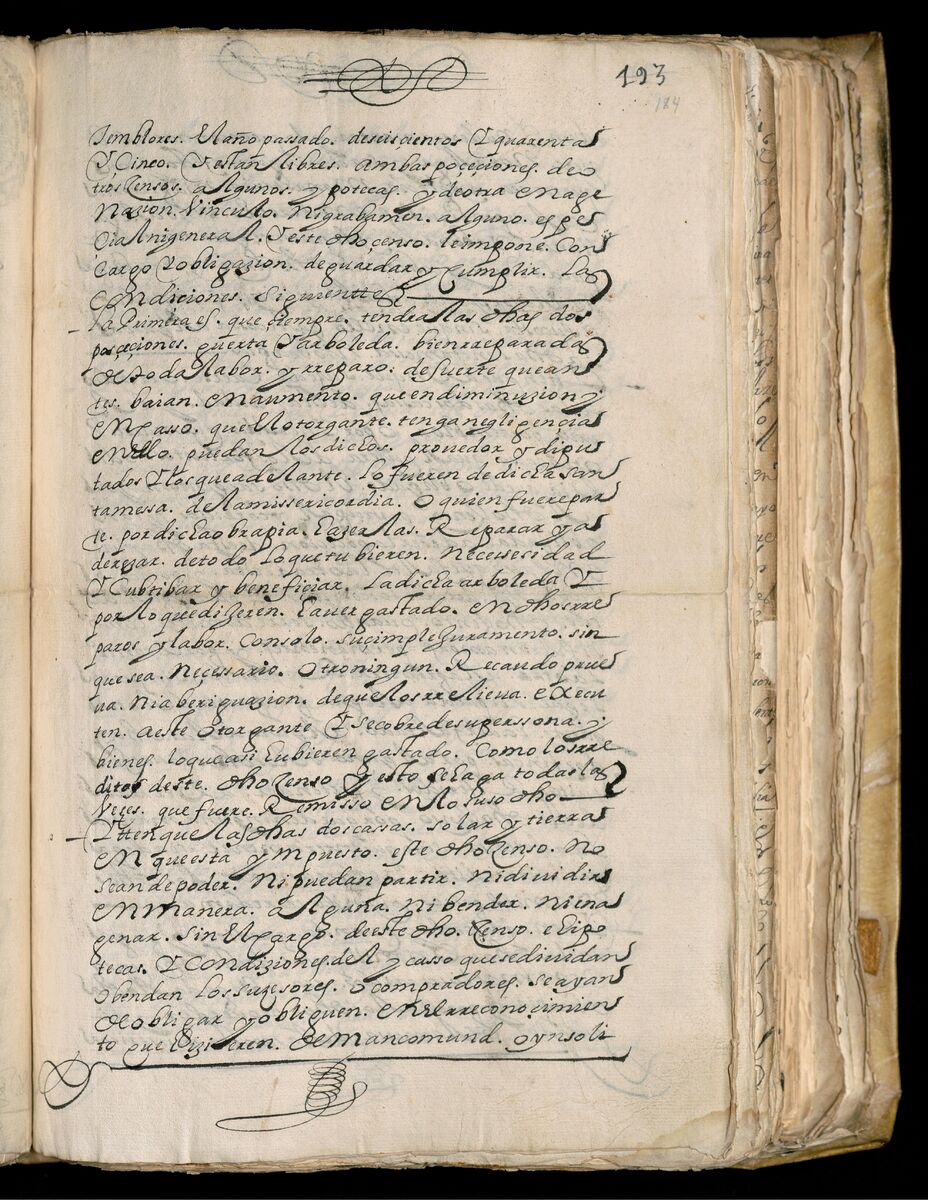 193
184
temblores. El año passado. de seisçientos Y quarenta
Y Cinco. Y estan libres. ambas poçeçiones. de o
tros Zensos. algunos. ypotecas. y de otra Enage
Nazion. Vinculo. Ni grabamen. alguno. espes
çial ni general. Y este dho çenso. le impone. Con
Cargo Y obligazion. de guardar y Cumplir. Las
Condiciones. Siguienttes
La Primera es. que çiempre. tendra las dhas dos
poçeçiones. guerta Y arboleda. bien rreparadas
de toda labor. y rreparo. de suerte que an
tes. baian. En aumento. que en diminuzion y
En Casso. que El otorgante. tenga negligencia
En ello. puedan los dichos. proueedor y dipu
tados Y los que adelante. lo fueren de dicha san
ta messa. de la missericordia. O quien fuere par
te. por dicha obra pia. hazerlas. Reparar y a
derezar. de todo lo que tubieren. Necessecidad
Y Cultibar y beneficiar. La dicha arboleda Y
por lo que dizeren. hauer gastado. En dhos rre
paros y labor. Con solo. su çimple Juramento. sin
que sea. Necessario. Otro ningun. Recaudo prue
ua. Ni aberiguazion. de que los rrelieua. execu
ten. a este Otorgante Y se cobre de su perssona. y
bienes. lo que asi hubieren gastado. Como los rre
ditos deste. dho Zenso Y esto se haga todas las
Veçes. que fuere. Remisso En lo suso dho
Ytten que las dhas dos cassas. solar y tierras
En que esta ympuesto. este dho Zenso. No
sean de poder. Ni puedan partir. Ni diuidir
En manera. alguna. Ni bender. Ni ena
genar. sin El Cargo. de este dho. Zenso. e hipo
tecas. Y Condiziones. del y casso que se diuidan
O bendan los suçesores. o compradores. se ayan
de obligar y obliguen. En El rreconoçimien
to que hizieren. de mancomund. o ynsoli